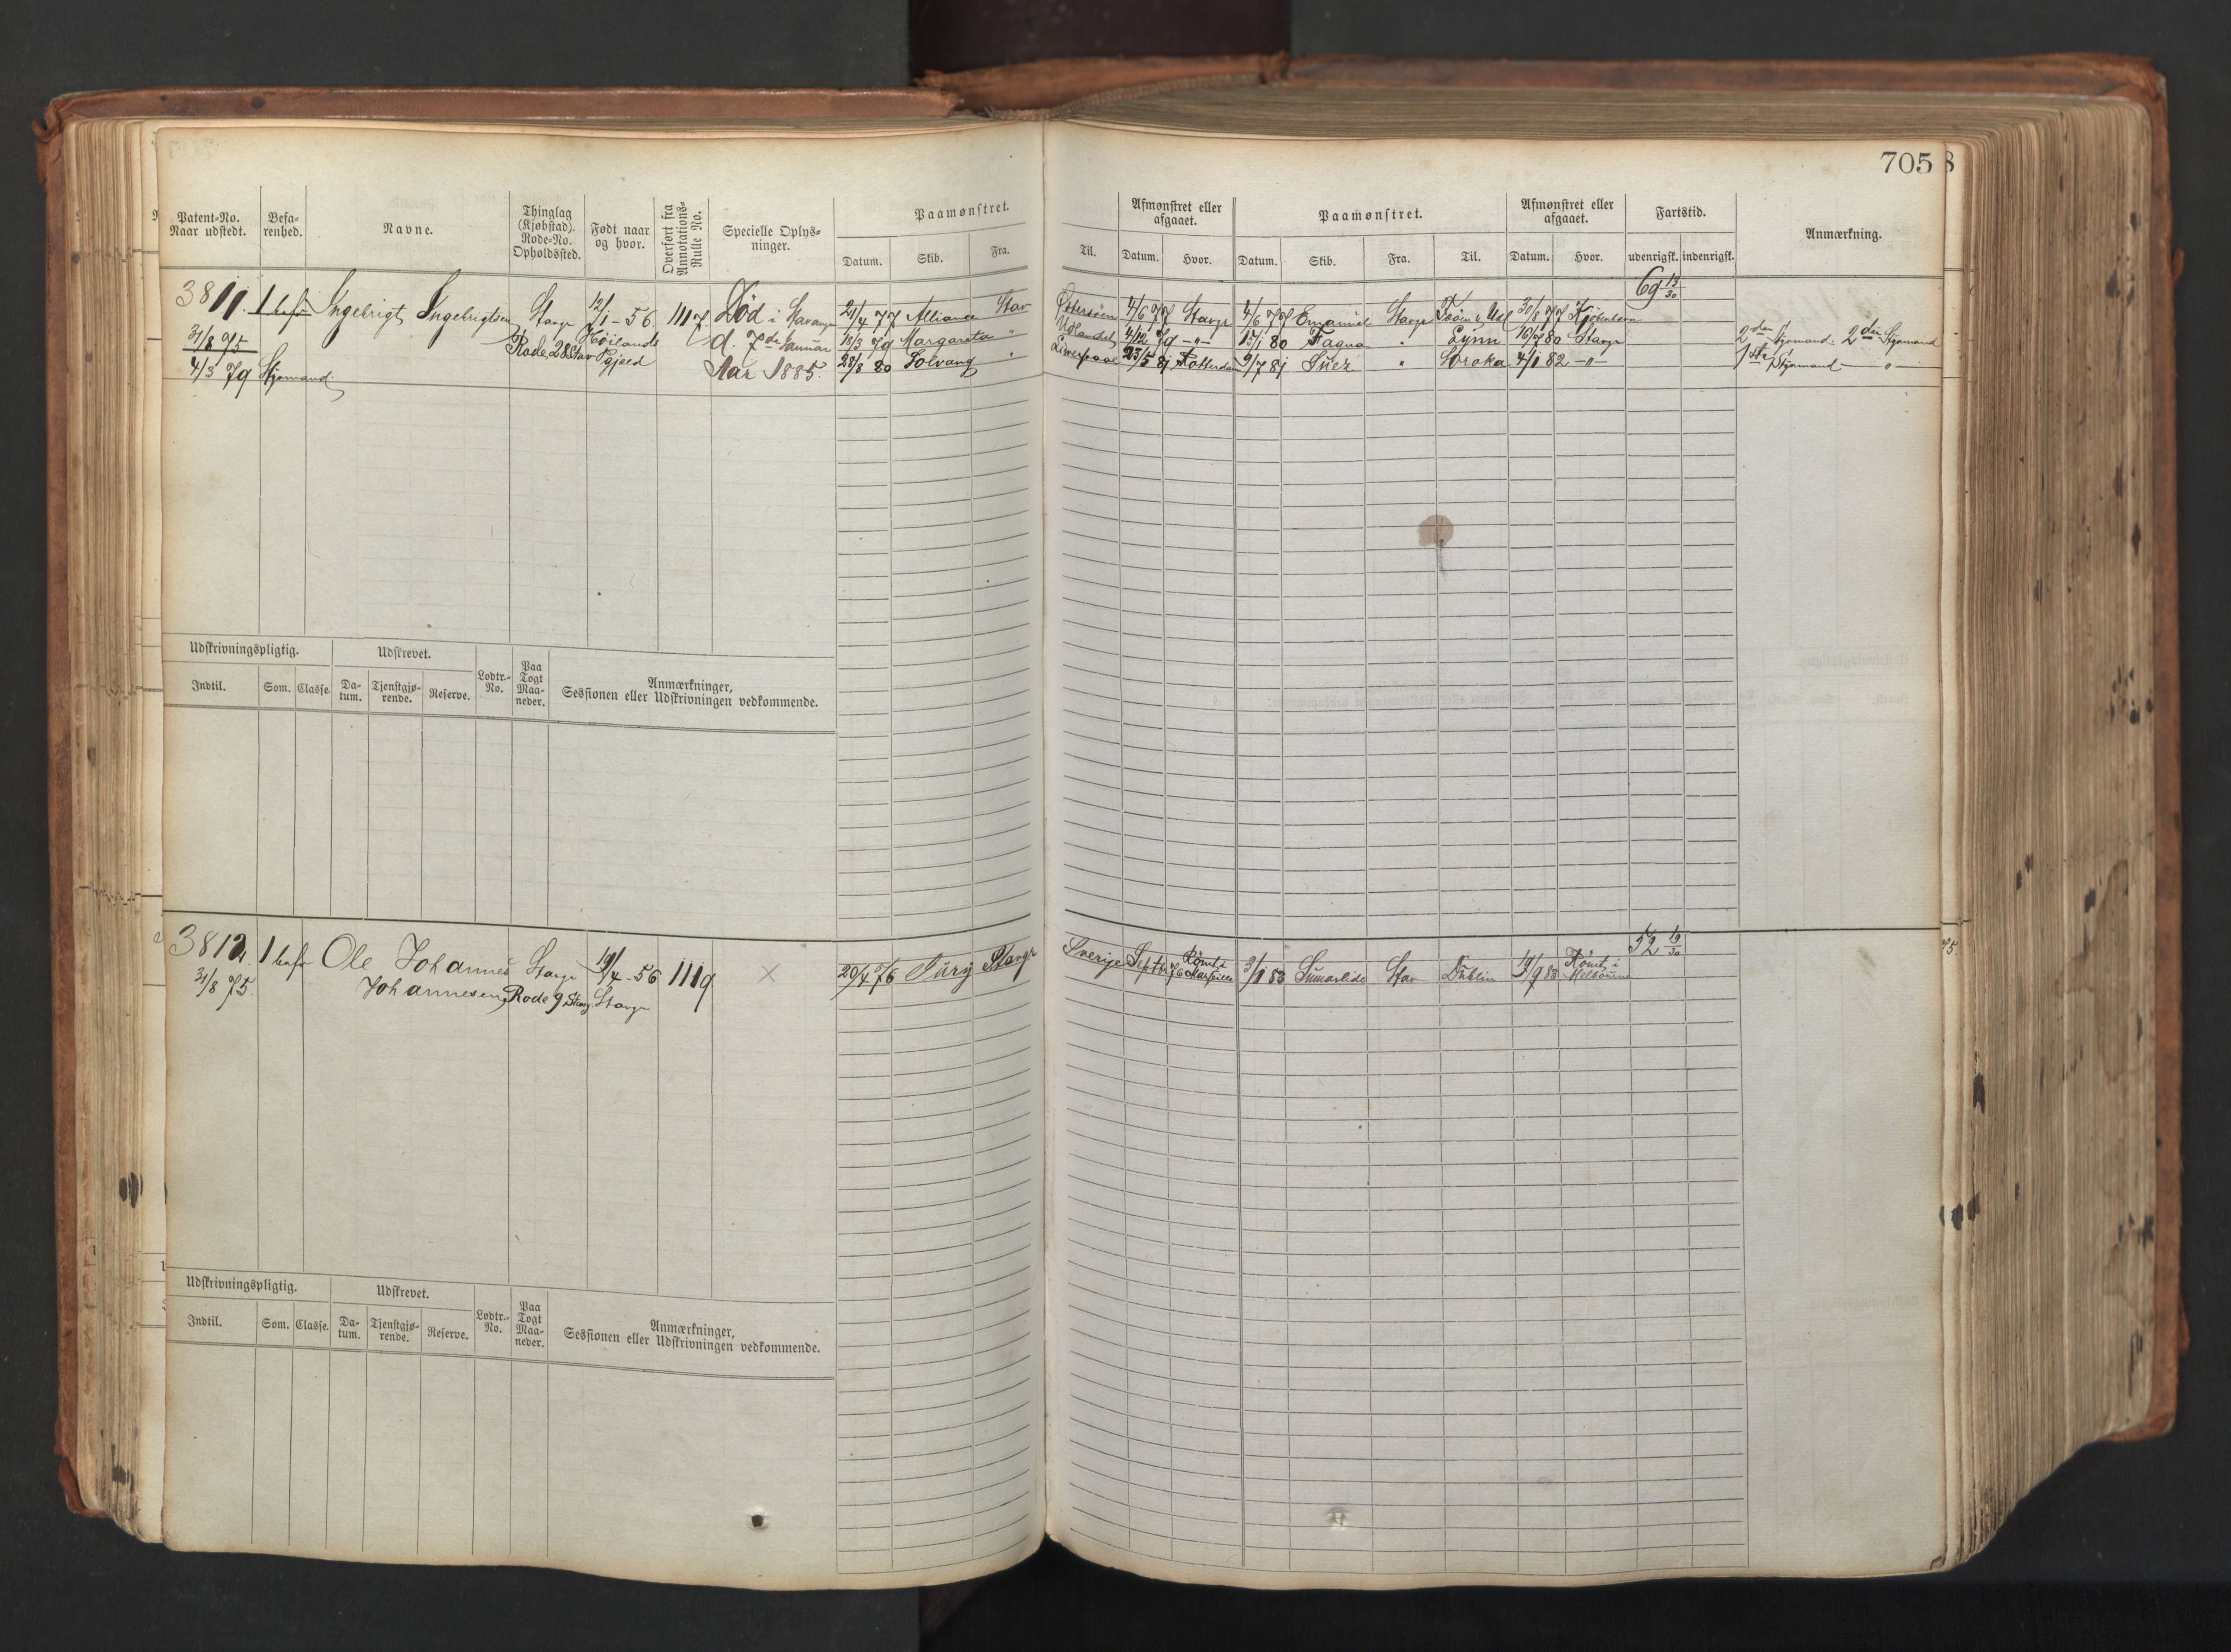 705
Patent-No. Naar udstedt.
Befarenhed.
Navne.
Thinglag (Kjøbstad). Rode-No. Opholdssted.
Født naar og hvor.
Overført fra Annotations-Rulle No.
Specielle Oplysninger.
Paamønstret.
Datum. Skib. Fra. Til.
Afmønstret eller afgaaet.
Datum. Hvor.
Paamønstret.
Datum. Skib. Fra. Til.
Afmønstret eller afgaaet.
Datum. Hvor.
Fartstid.
udenrigsk. indenrigsk.
Anmærkning.
69 13/30
3811. 1 bef Ingebrigt Ingebrigtsen Stavgr 12/1-56. 1117. Død i Stavanger 21/4 77 Alliance Stav Østersøen 4/6 77 Stavgr 4/6 77 Emanuel Stavgr 30/8 77
31/8 75 Rode 28 Stav Høilands d. 7de Januar 18/3 79 Margaretha " Udlandet 4/12 79 -"- 15/1 80 Fagna " Lynn 16/7 80 Stavgr 2den Styrmand. 2den Styrmand
4/3 79 Styrmand Pgjæld Aar 1885. 28/8 80 Solvang " Liverpool 23/5 81 Rotterdam 9/7 81 Inez " Soroka 4/1 82 -"- 1ste Styrmand "
Udskrivningspligtig.
Indtil. Som. Classe.
Udskrevet.
Datum. Tjenstgjørende. Reserve.
Lodtr.-No.
Paa Togt Maaneder.
Anmærkninger,
Sessionen eller Udskrivningen vedkommende.
52 19/30
3812. 1 bef Ole Johannes Stavgr 19/4-56 1119 × 20/4 76 Jury Stavgr Sverige Septbr 76 Rømt i Marseille 3/1 83 Sumarlide Stav Dublin 19/9 83 Rømt i Melbourne
31/8 75. Johannesen, Rode 9 Stavg. Stavgr
Udskrivningspligtig.
Indtil. Som. Classe.
Udskrevet.
Datum. Tjenstgjørende. Reserve.
Lodtr.-No.
Paa Togt Maaneder.
Anmærkninger,
Sessionen eller Udskrivningen vedkommende.